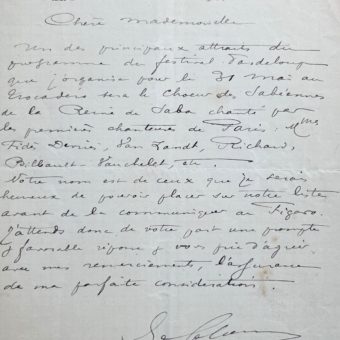 Chère mademoiselle
Un des principaux attraits du
programme du festival Pasdeloup
que j'organise pour le 31 mai au
Trocadéro sera le Choeur des Sabéennes
de la Reine de Saba chanté par
les premières chanteuses de Paris: Mmes
Fidès Devriès, Van Zandt, Richard,
Bilbault-Vauchelet, etc.
Votre nom est de ceux que je serais
heureux de pouvoir placer sur notre liste
avant de la communiquer au Figaro.
J'attends donc de votre part une prompte
& favorable réponse & vous prie d'agréer
avec mes remerciements, l'assurance
de ma parfaite considération.